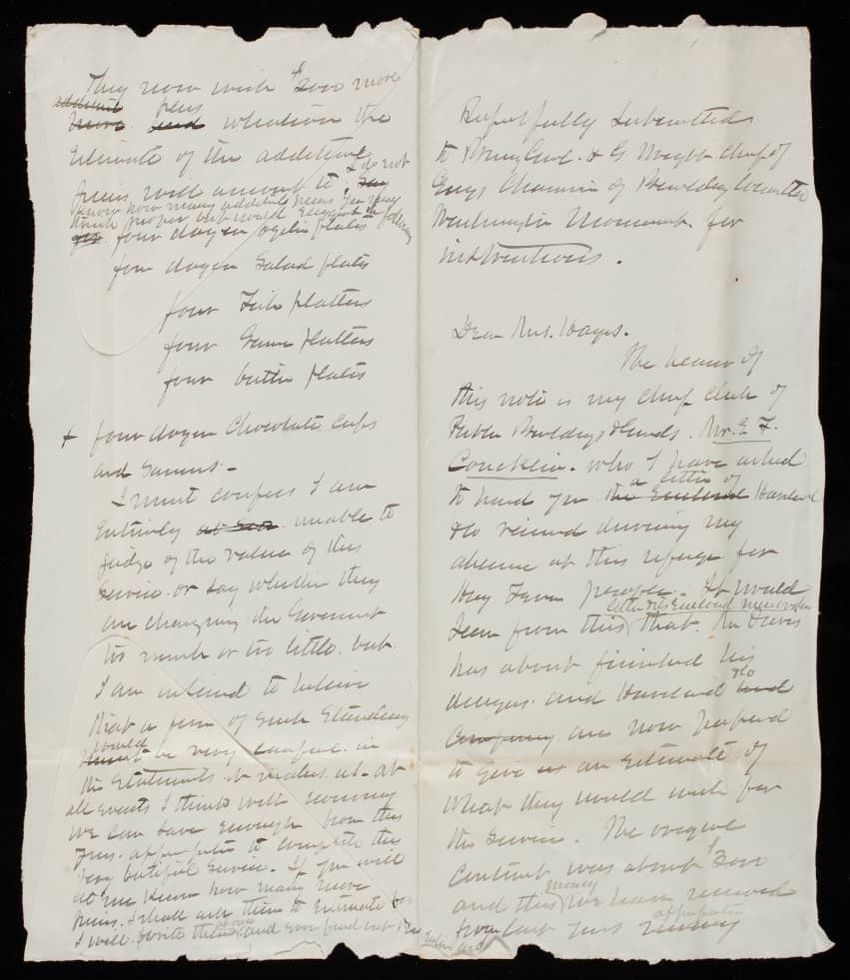 Respectfully Submitted
to Brig Genl. H G Wright Chief of
Engs Chairman of Building Committee
Washington Monument. for
instructions.
Dear Mrs. Hayes.
The bearer of
this note is my chief clerk of
Public Buildings & Grounds. Mr. E. F.
Concklin. who I have asked
to hand you the Enclosed a letter of Haviland
& Co received during my
absence at this refuge for
Hay Fever people. It would
seem from this letter that. Mr Davis
has about finished his
designs. and Haviland & Co and
Company are now prepared
to give us an Estimate of
what they would wish for
the Service. The original
contract was about $3000
and this money we have received
from last years money appropriation
They now wish $2000 more
additional
more. and plus whatever the
Estimate of the additional
pieces will amount to, I do not say
know how many additional pieces you may
think proper but would suggest the following
four dozen oyster plates
four dozen Salad plates
four Fish platters
four Game platters
four butter plates
+ four dozen Chocolate Cups
and Saucers.-
I must confess I am
Entirely unable to
judge of the value of this
Service. or say whether they
are charging the Goverment
too much or too little. but.
I am inclined to believe
that a firm of such Standing
would be very careful. in
the Statements it makes us. At
all events I think with economy
we can save enough from this
years. appropriation to complete this
very beautiful Service. If you will
let me know how many more
pieces. I shall ask them to Estimate for
I will write them at once and find out the